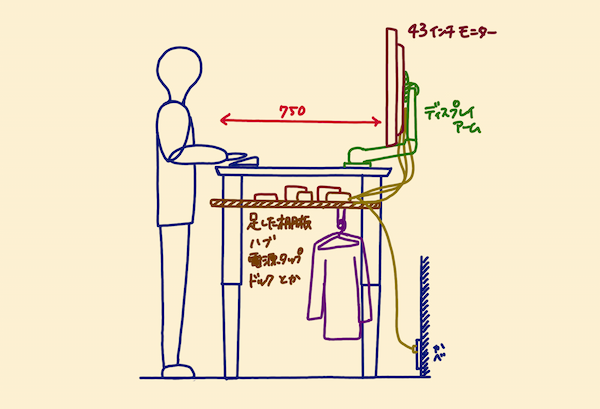 43インチモニター
750
ディスプレイ
アーム
足した棚板
ハブ
電源タップ
ドックとか
かべ